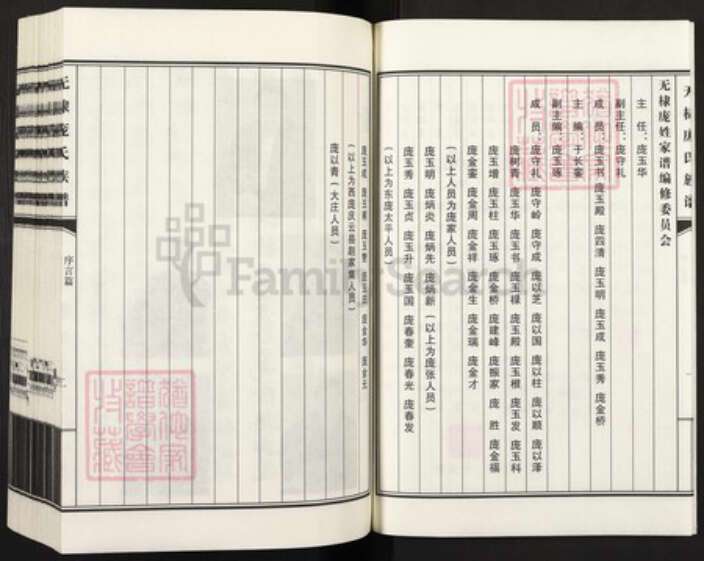 无棣庞姓家谱编修委员会
主　任：庞玉华
副主任：庞守礼
成　员：庞玉书 庞玉殿 庞四清 庞玉明 庞玉成 庞玉秀 庞金桥
主　编：于长銮
副主编：庞玉琢
成　员：庞守礼 庞守岭 庞守成 庞以芝 庞以国 庞以柱 庞以顺 庞以泽
庞树青 庞玉华 庞玉书 庞玉禄 庞玉殿 庞玉根 庞玉发 庞玉科
庞玉增 庞玉柱 庞玉琢 庞金桥 庞建峰 庞振家 庞　胜 庞金福
庞金銮 庞金周 庞金祥 庞金生 庞金瑞 庞金才
（以上人员为庞家人员）
庞玉明 庞炳炎 庞炳先 庞炳新（以上为庞张人员）
庞玉秀 庞玉贞 庞玉升 庞玉国 庞春奎 庞春光 庞春发
（以上为东庞太平人员）
庞玉成
（以上为西庞庆云县尉家集人员）
庞以青（大庄人员）
无棣庞氏族谱
序言篇
FamilySearch